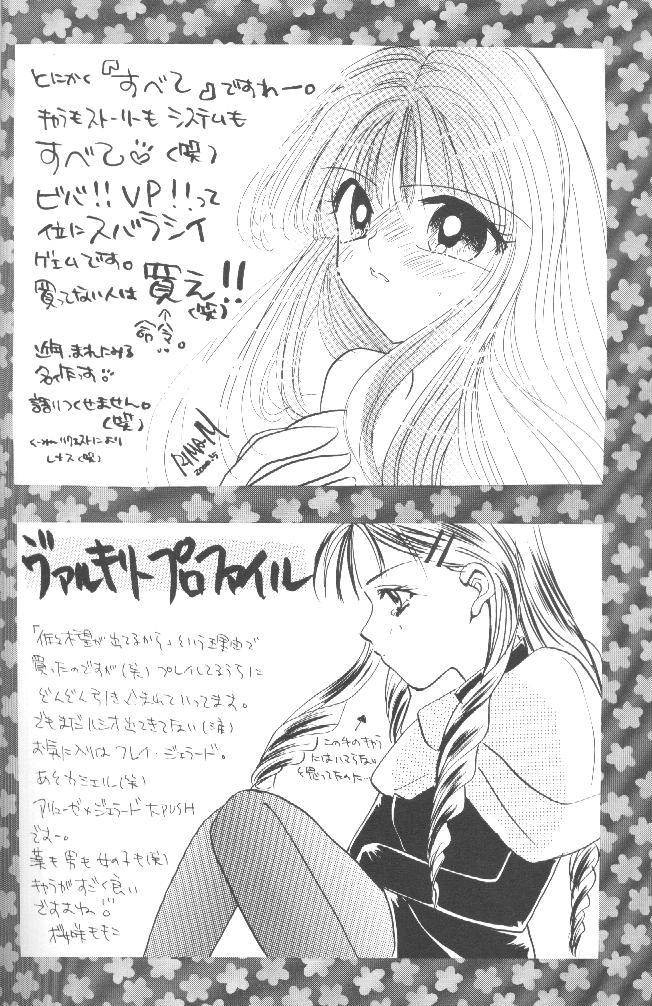 とにかく『すべて』ですわー。
キャラもストーリーも システムも
すべて♡(笑)
ビバ!! VP!!って
位にスバラシイ
ゲェムです。
買ってない人は 買え!!
(笑)
↑
命令。
近年、まれにみる
名作っす
語りつくせません。
(笑)
リクエストにより
レナス(笑)
RINA・M
2000.5
ヴァルキリープロファイル
「佐々木望が出てるから」という理由で
買ったのですが(笑)プレイしてるうちに
どんどん引き込まれていってます。
でもまだルシオ出てきてない(涙)
お気に入りはフレイ・ジェラード。
あとカシェル(笑)
アリューゼ×ジェラード大PUSH
ですー。
男も女の子も(笑)
キャラがすごく良い
ですよね
ももこ
この手のキャラ
にはいてるない
と思ってたのに…